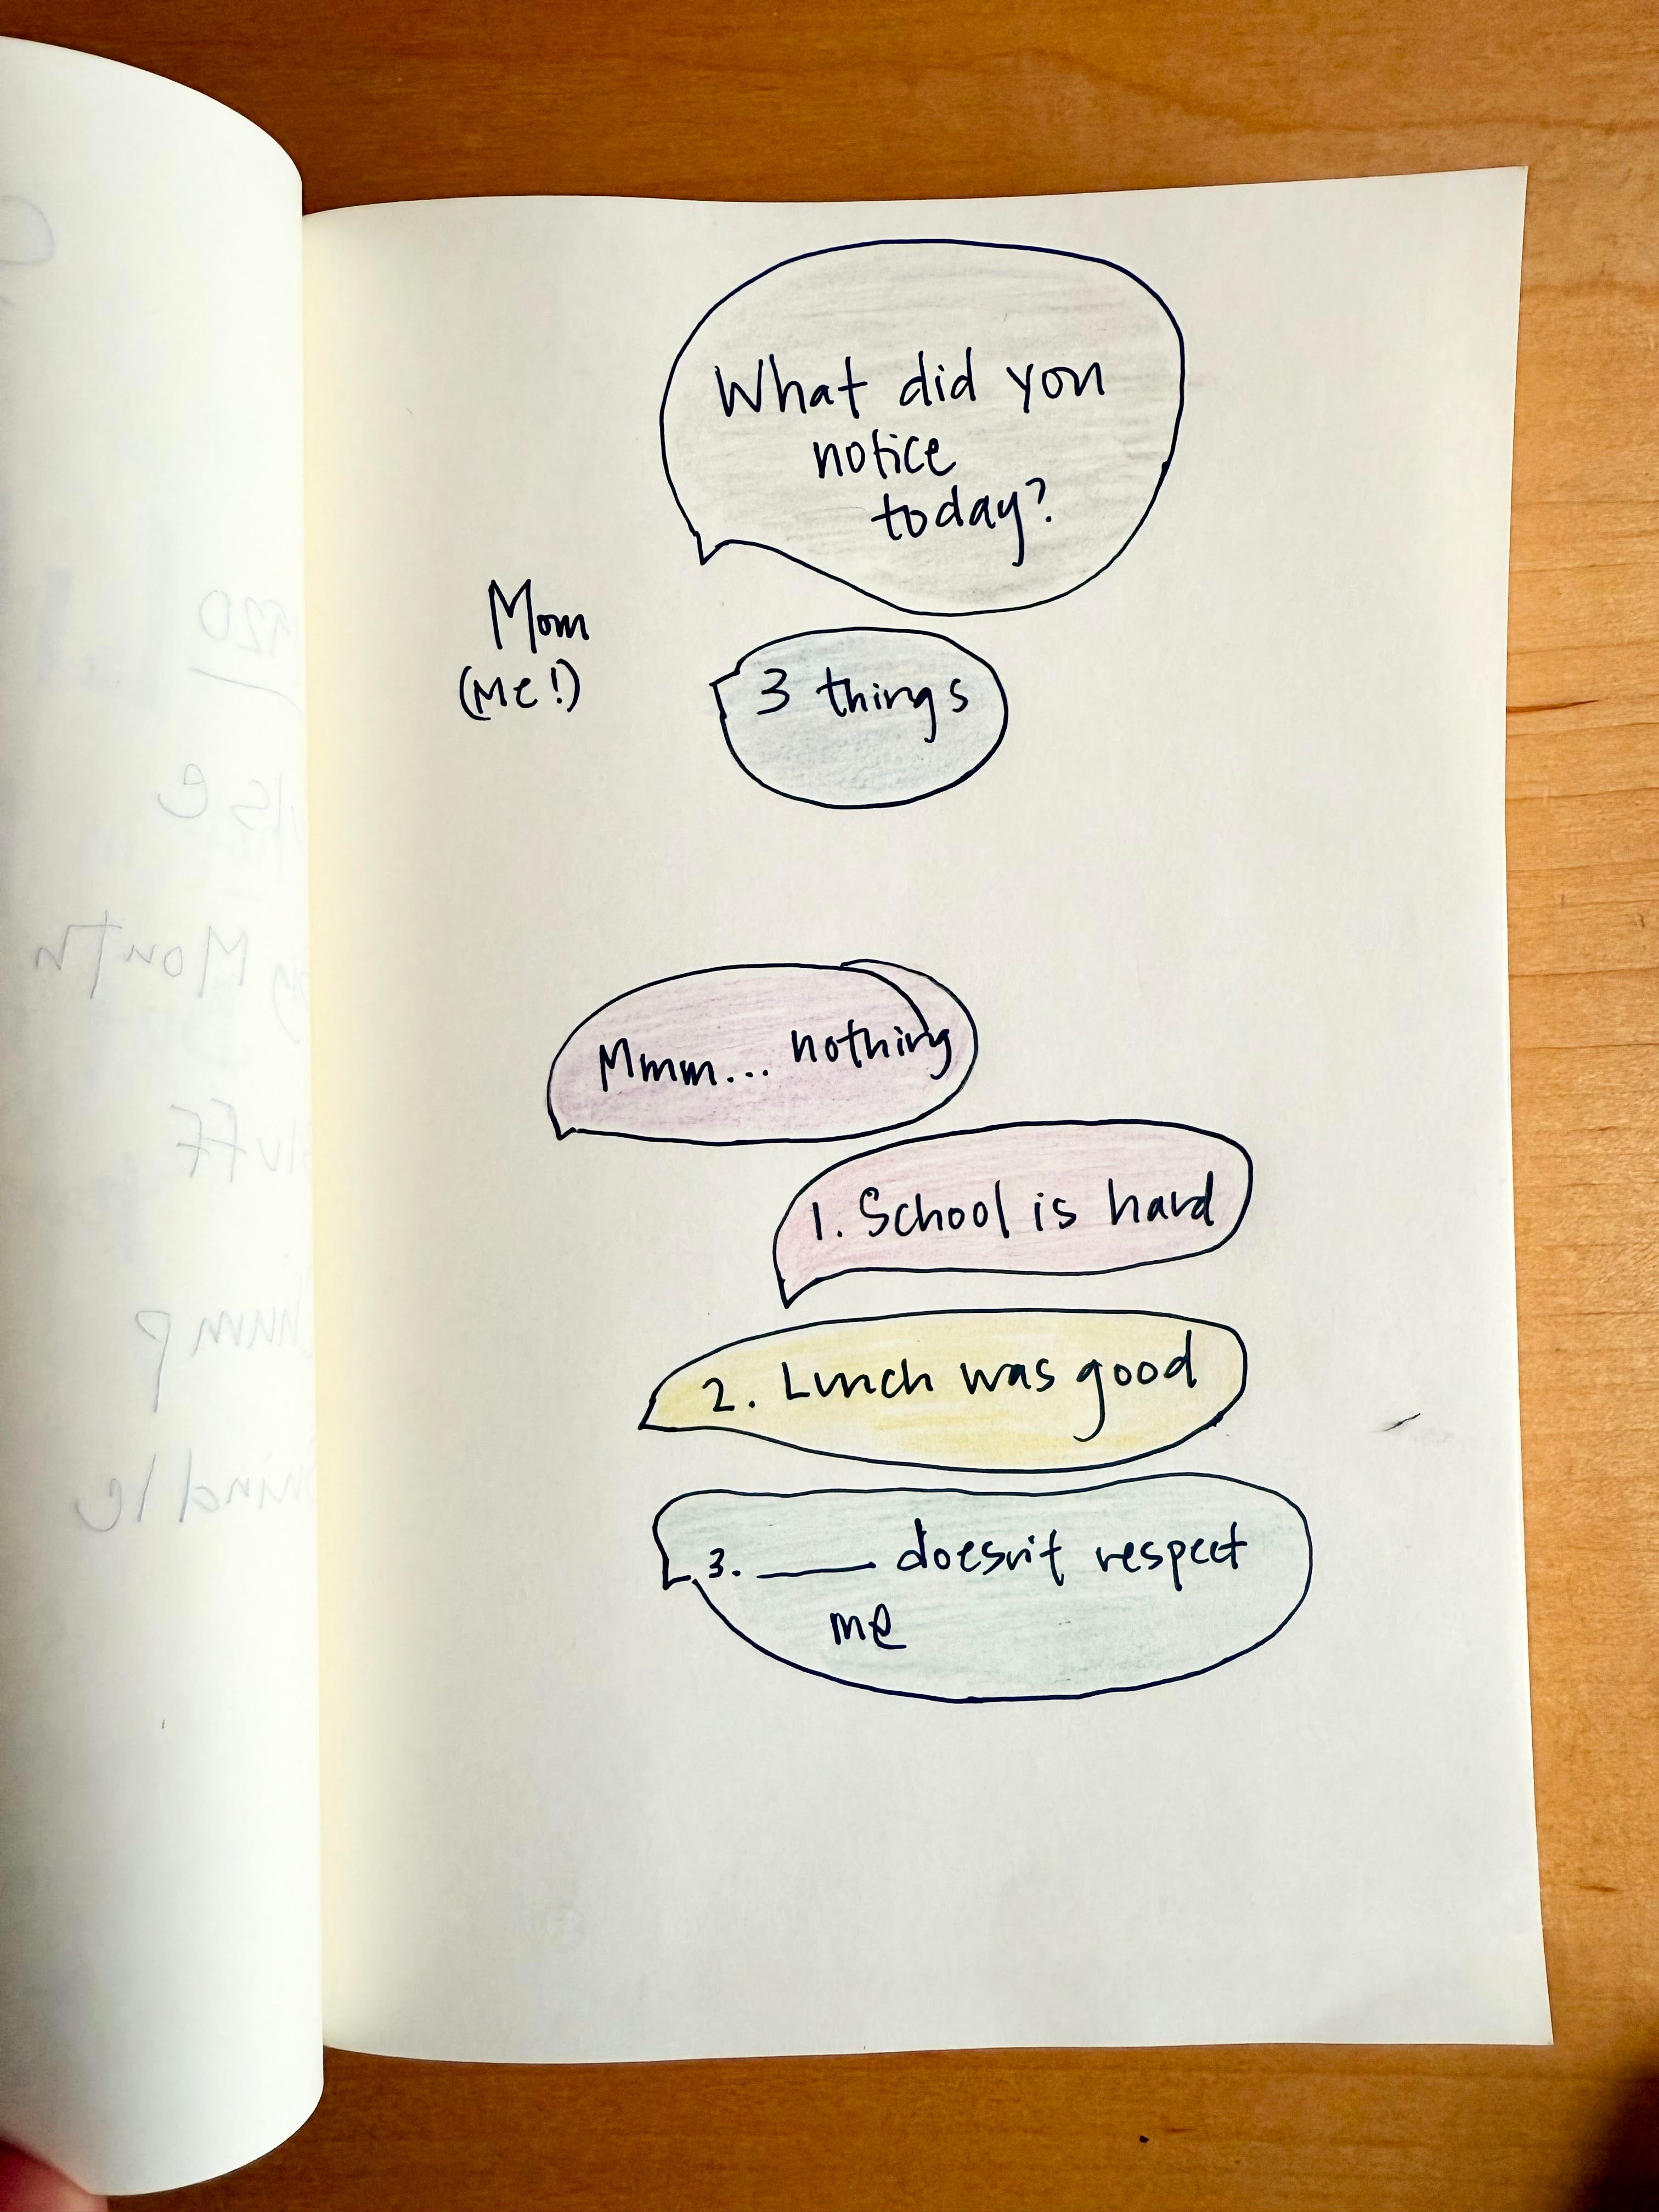 What did you
notice
today?
Mom
(Me!)
3 things
Mmm... nothing
1. School is hard
2. Lunch was good
3. ____ doesn't respect
me